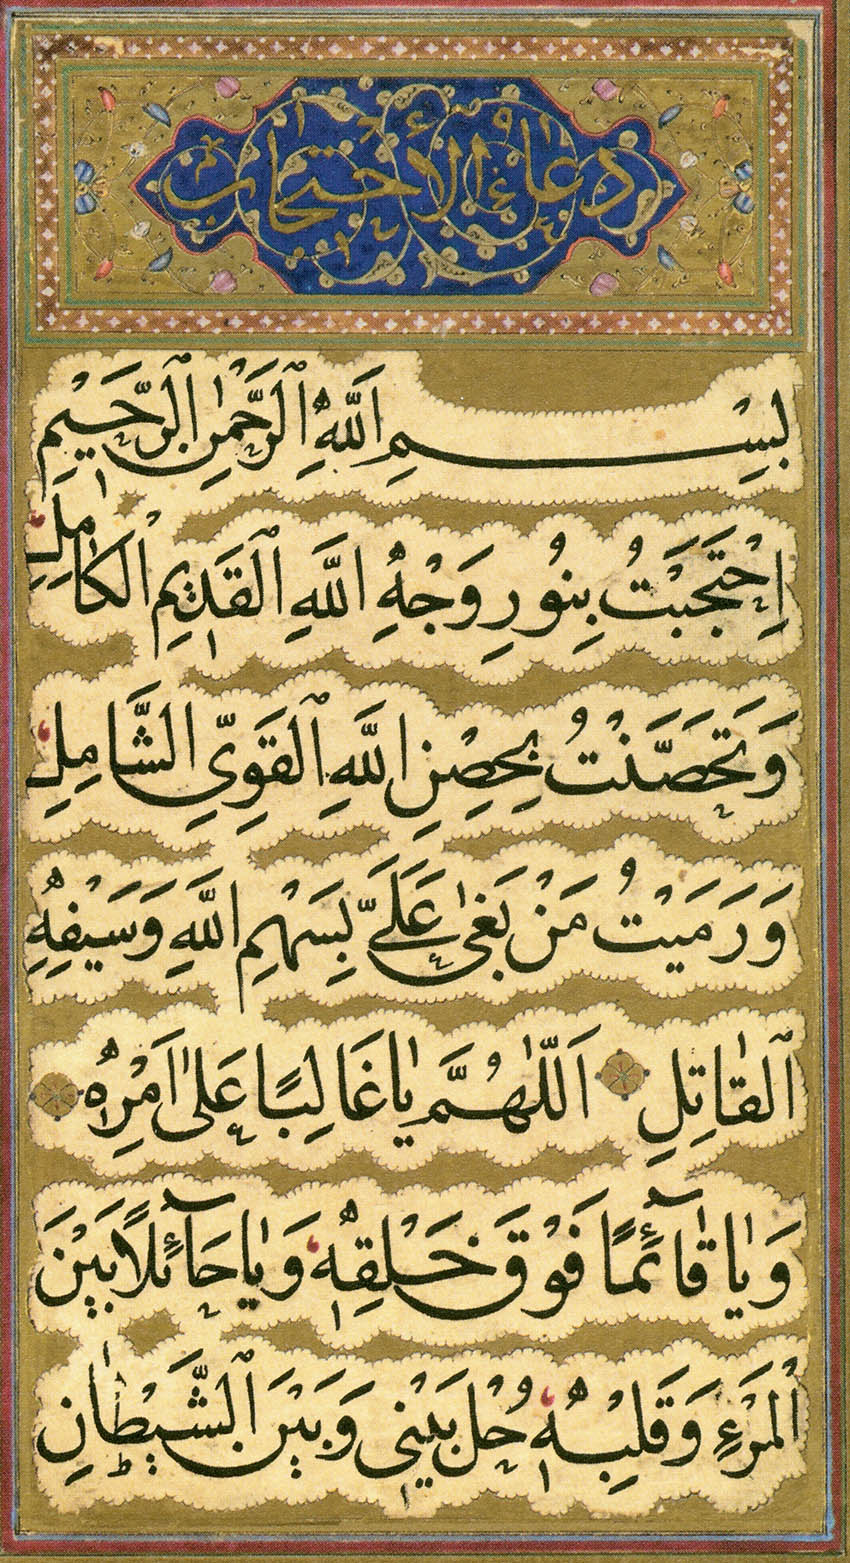 دعاء الاحتجاب
بِسْمِ اللّٰهِ الرَّحْمٰنِ الرَّحٖيمِ
اِحْتَجَبْتُ بِنُورِ وَجْهِ اللّٰهِ الْقَدٖيمِ الْكَامِلِ
وَتَحَصَّنْتُ بِحِصْنِ اللّٰهِ الْقَوِيِّ الشَّامِلِ
وَرَمَيْتُ مَنْ بَغٰى عَلَيَّ بِسَهْمِ اللّٰهِ وَسَيْفِهِ
الْقَاتِلِ اَللّٰهُمَّ يَا غَالِبًا عَلٰى اَمْرِهٖ
وَيَا قَٓائِمًا فَوْقَ خَلْقِهٖ وَيَا حَٓائِلًا بَيْنَ
الْمَرْءِ وَقَلْبِهٖ حُلْ بَيْنٖي وَبَيْنَ الشَّيْطَانِ